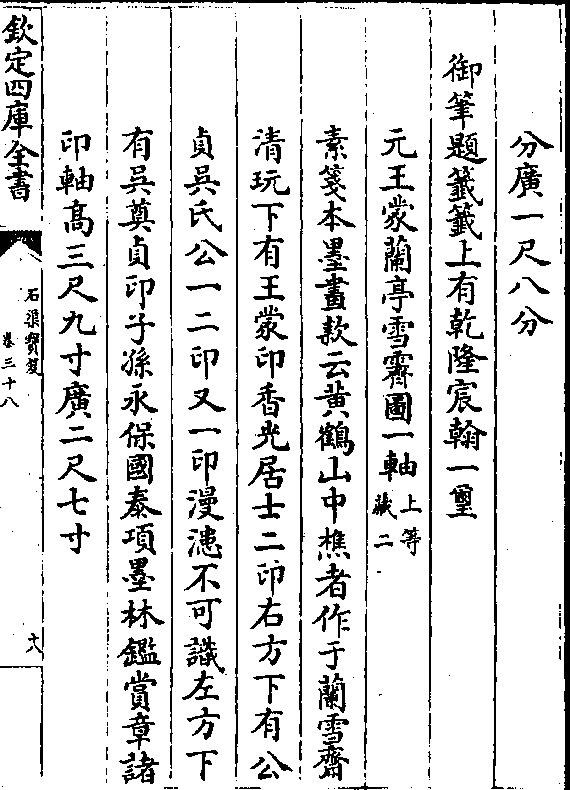 分廣一尺八分
御筆題籤籤上有乾隆宸翰一璽
元王蒙蘭亭雪霽圖一軸上等藏二
素箋本墨畫款云黄鶴山中樵者作于蘭雪齋
清玩下有王蒙印香光居士二印右方下有公
貞吳氏公一二印又一印漫漶不可識左方下
有吳奠貞印子孫永保國泰項墨林鑑賞章諸
印軸高三尺九寸廣二尺七寸
欽定四庫全書
石渠寶笈
卷三十八
十八